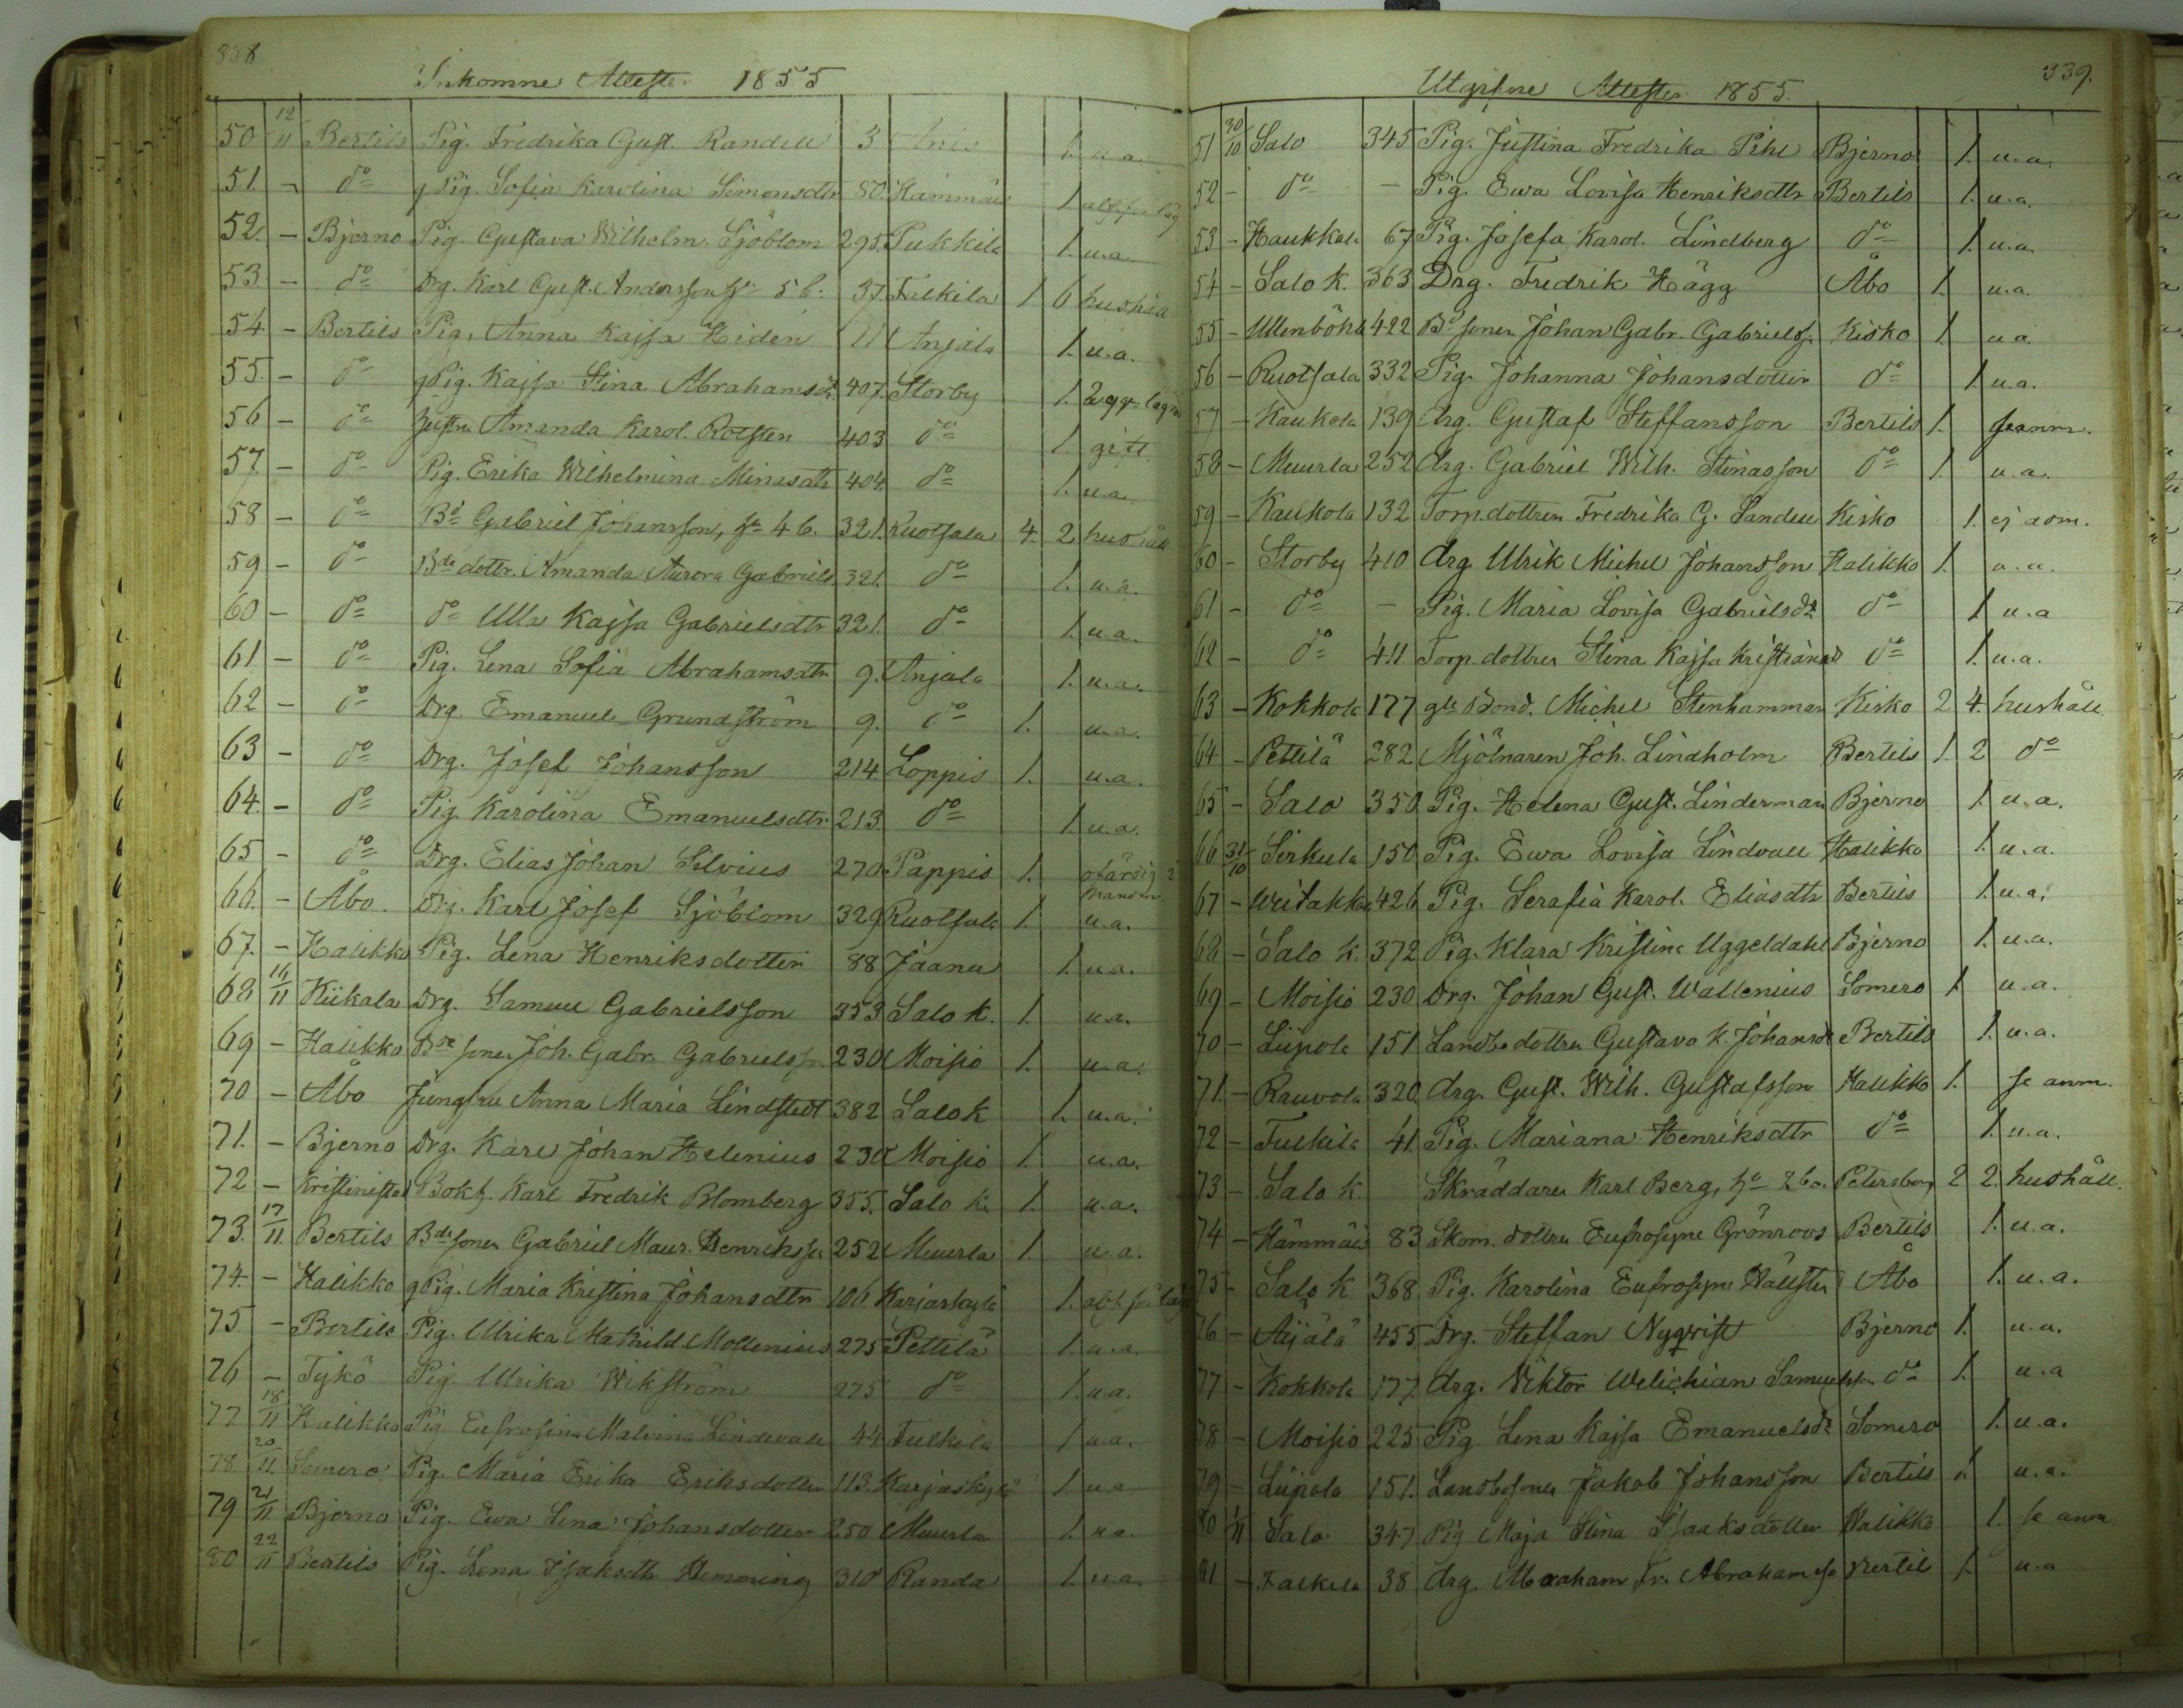 338
Inkomne Attester 1855
50 12/11 Bertils Pig. Fredrika Gust. Randell 3 Anis 1. u.a.
51. - do Pig. Sofia Karolina Simonsdtr 80. Hämmäis 1.
52. - Bjerno Pig. Gustava Wilhelm. Sjöblom 295. Pukkila 1. u.a.
53 - do Drg. Karl Gust. Andersson 37. Falkila 1 6 hushåll
54. - Bertils Pig. Anna Kajsa Hidén 11 Anjala 1. u.a.
55. - do Pig. Kajsa Stina Abrahamsdr 407. Storby 1.
56 - do Amanda Karol. Rotsten 403 do 1. gift
57. - do Pig. Erika Wilhelmina Minasdtr 404. do 1. u.a.
58 - do Bd Gabriel Johansson, 321. Ruotsala 4. 2 hushåll
59 - do Bde dottr. Amanda Aurora Gabriels 321. do 1. u.a.
60 - do do Ulla Kajsa Gabrielsdtr 321. do 1. u.a.
61 - do Pig. Lena Sofia Abrahamsdtr 9. Anjala 1. u.a.
62 - do Drg. Emanuel Grundström 9. do 1. u.a.
63 - do Drg. Josef Johansson 214 Loppis 1. u.a.
64. - do Pig. Karolina Emanuelsdtr 213 do 1. u.a.
65 - do Drg. Elias Johan Silvius 270 Pappis 1. ofärdig i handen
66. - Åbo Drg. Karl Josef Sjöblom 329 Ruotsala 1. u.a.
67. - Halikko Pig. Lena Henriksdotter 88 Jaanu 1. u.a.
68 16/11 Kiikala Drg. Samuel Gabrielsson 353 Salo k. 1. u.a.
69 - Halikko Bde sonen Joh. Gabr. Gabrielss. 230 Moisio 1. u.a.
70 - Åbo Jungfru Anna Maria Lindstedt 382 Salo k 1. u.a.
71. - Bjerno Drg. Karl Johan Helenius 230 Moisio 1. u.a.
72 - Kristinestad Bokh. Karl Fredrik Blomberg 355. Salo k. 1. u.a.
73. 17/11 Bertils Bde sonen Gabriel Maur. Henrikss. 252 Muurla 1. u.a.
74. - Halikko Pig. Maria Kristina Johansdtr 106 Karjaskylä 1.
75 - Bertils Pig. Ulrika Mathild. Mollenius 275 Pettilä 1. u.a.
76 - Tykö Pig. Ulrika Wikström 275 do 1. u.a.
77 18/11 Halikko Pig. Eufrosina Malvina Lindvall 44 Fulkila 1 u.a.
78 20/11 Somero Pig. Maria Erika Eriksdotter 113. Karjaskylä 1 u.a
79 21/11 Bjerno Pig. Ewa Lina Johansdotter 250 Muurla 1. u.a.
80 22/11 Bertils Pig. Lena Isaksdtr Hemming 310 Randa 1. u.a.
339.
Utgifne Attester 1855.
51 30/10 Salo 345 Pig. Justina Fredrika Pihl Bjerno 1. u.a.
52 - do - Pig. Ewa Lovisa Henriksdtr Bertils 1. u.a.
53 - Haukkala 67 Pig. Josefa Karol. Lindberg do 1. u.a.
54 - Salo k. 363 Drg. Fredrik Hägg Åbo 1. u.a.
55 - 422 Bd sonen Johan Gabr. Gabrielss. Kisko 1. u.a.
56 - Ruotsala 332 Pig. Johanna Johansdotter do 1. u.a.
57 - Kaukola 139 drg. Gustaf Steffansson Bertils 1. se anm.
58 - Muurla 252 drg. Gabriel Wilh. Stinasson do 1. u.a.
59 - Kaukola 132 Torp.dottren Fredrika G. Sandell Kisko 1. ej adm.
60 - Storby 410 drg. Ulrik Michel Johansson Halikko 1. u.a.
61 - do - Pig. Maria Lovisa Gabrielsdr do 1. u.a
62 - do 411 Torp.dottren Stina Kajsa Kristiansd do 1. u.a.
63 - Kokkola 177 gle Bond. Michel Stenhammar Kisko 2 4. hushåll
64 - Pettilä 282 Mjölnaren Joh. Lindholm Bertils 1. 2 do
65 - Salo 350 Pig. Helena Gust. Linderman Bjerno 1. u.a.
66 31/10 Sirkula 150 Pig. Ewa Lovisa Lindvall Halikko 1. u.a.
67 - 426 Pig. Serafia Karol. Eliasdtr Bertils 1. u.a.
68 - Salo k. 372 Pig. Klara Kristina Uggeldahl Bjerno 1. u.a.
69 - Moisio 230 Drg. Johan Gust. Wallenius Somero 1 u.a.
70 - Liipola 151 Landb. dottren Gustava K. Johansdr Bertils 1. u.a.
71. - Rauvola 320 drg. Gust. Wilh. Gustafsson Halikko 1. se anm.
72 - Fulkila 41 Pig. Mariana Henriksdtr do 1. u.a.
73 - Salo k. Skräddaren Karl Berg, Petersburg 2 2. hushåll.
74 - Hämmäis 83 Skom. dottren Eufrosyne Grönroos Bertils 1. u.a.
75 - Salo k. 368 Pig. Karolina Eufrosyne Hällsten Åbo 1. u.a.
76 - Äijälä 455. Drg. Steffan Nyqvist Bjerno 1. u.a.
77 - Kokkola 177. drg. Viktor Welichian Samuelss. do 1. u.a
78 - Moisio 225 Pig. Lena Kajsa Emanuelsdr Somero 1. u.a.
79 - Liipola 151. Landbosonen Jakob Johansson Bertils 1. u.a.
80 1/11 Salo 347 Pig Maja Stina Isaksdotter Halikko 1. se anm
81 - Falkila 38 drg. Abraham Fr. Abrahamss Bertil 1. u.a